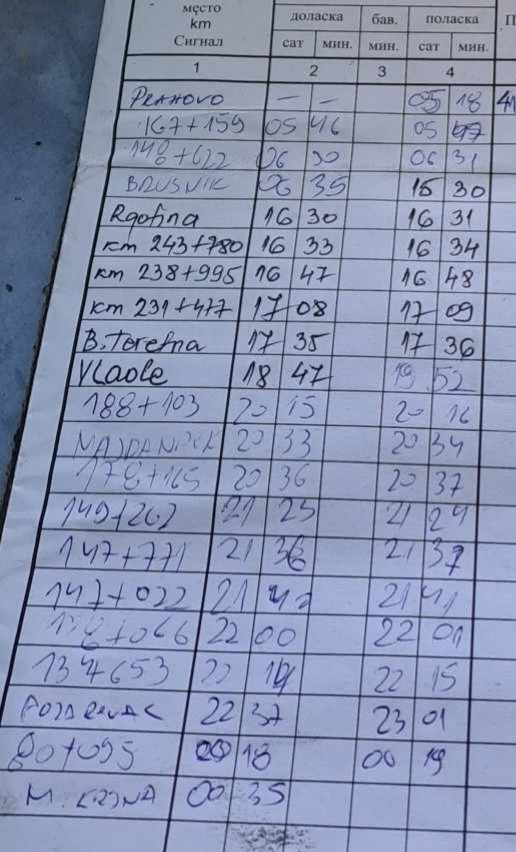 место доласка бав. поласка П
km
Сигнал сат мин. мин. сат мин.
1 2 3 4
PRAHOVO — — 05 18 41
167+159 05 46 05 47
148+622 06 30 06 31
BRUSNIK 06 35 15 30
Rgotina 16 30 16 31
km 243+780 16 33 16 34
km 238+995 16 47 16 48
km 231+477 17 08 17 09
B. Toretna 17 35 17 36
Vlaole 18 47 19 52
188+103 20 15 20 16
MAJDANPEK 20 33 20 34
178+165 20 36 20 37
149+262 21 23 21 24
147+771 21 36 21 37
147+022 21 21 41
138+066 22 00 22 01
134+653 22 14 22 15
POZAREVAC 22 37 23 01
80+095 00 18 00 19
M. KRSNA 00 35